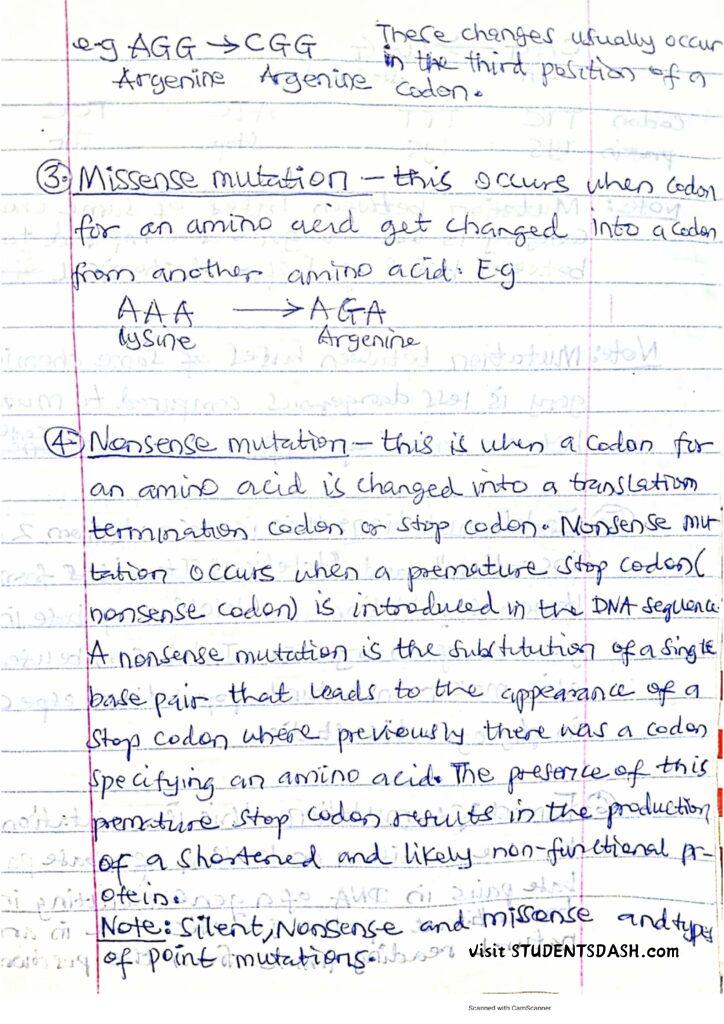 e.g AGG → CGG
Argenine Argenine
These changes usually occur
in the third position of a
codon.
3. Missense mutation – this occurs when codon
for an amino acid get changed into a codon
from another amino acid. E.g
AAA → AGA
Lysine Argenine
4. Nonsense mutation – this is when a codon for
an amino acid is changed into a translation
termination codon or stop codon. Nonsense mu-
tation occurs when a premature stop codon (
nonsense codon) is introduced in the DNA sequence.
A nonsense mutation is the substitution of a single
base pair that leads to the appearance of a
stop codon where previously there was a codon
specifying an amino acid. The presence of this
premature stop codon results in the production
of a shortened and likely non-functional pr-
otein.
Note: Silent, Nonsense and missense and types
of point mutations.
visit STUDENTSDASH.com
Scanned with CamScanner